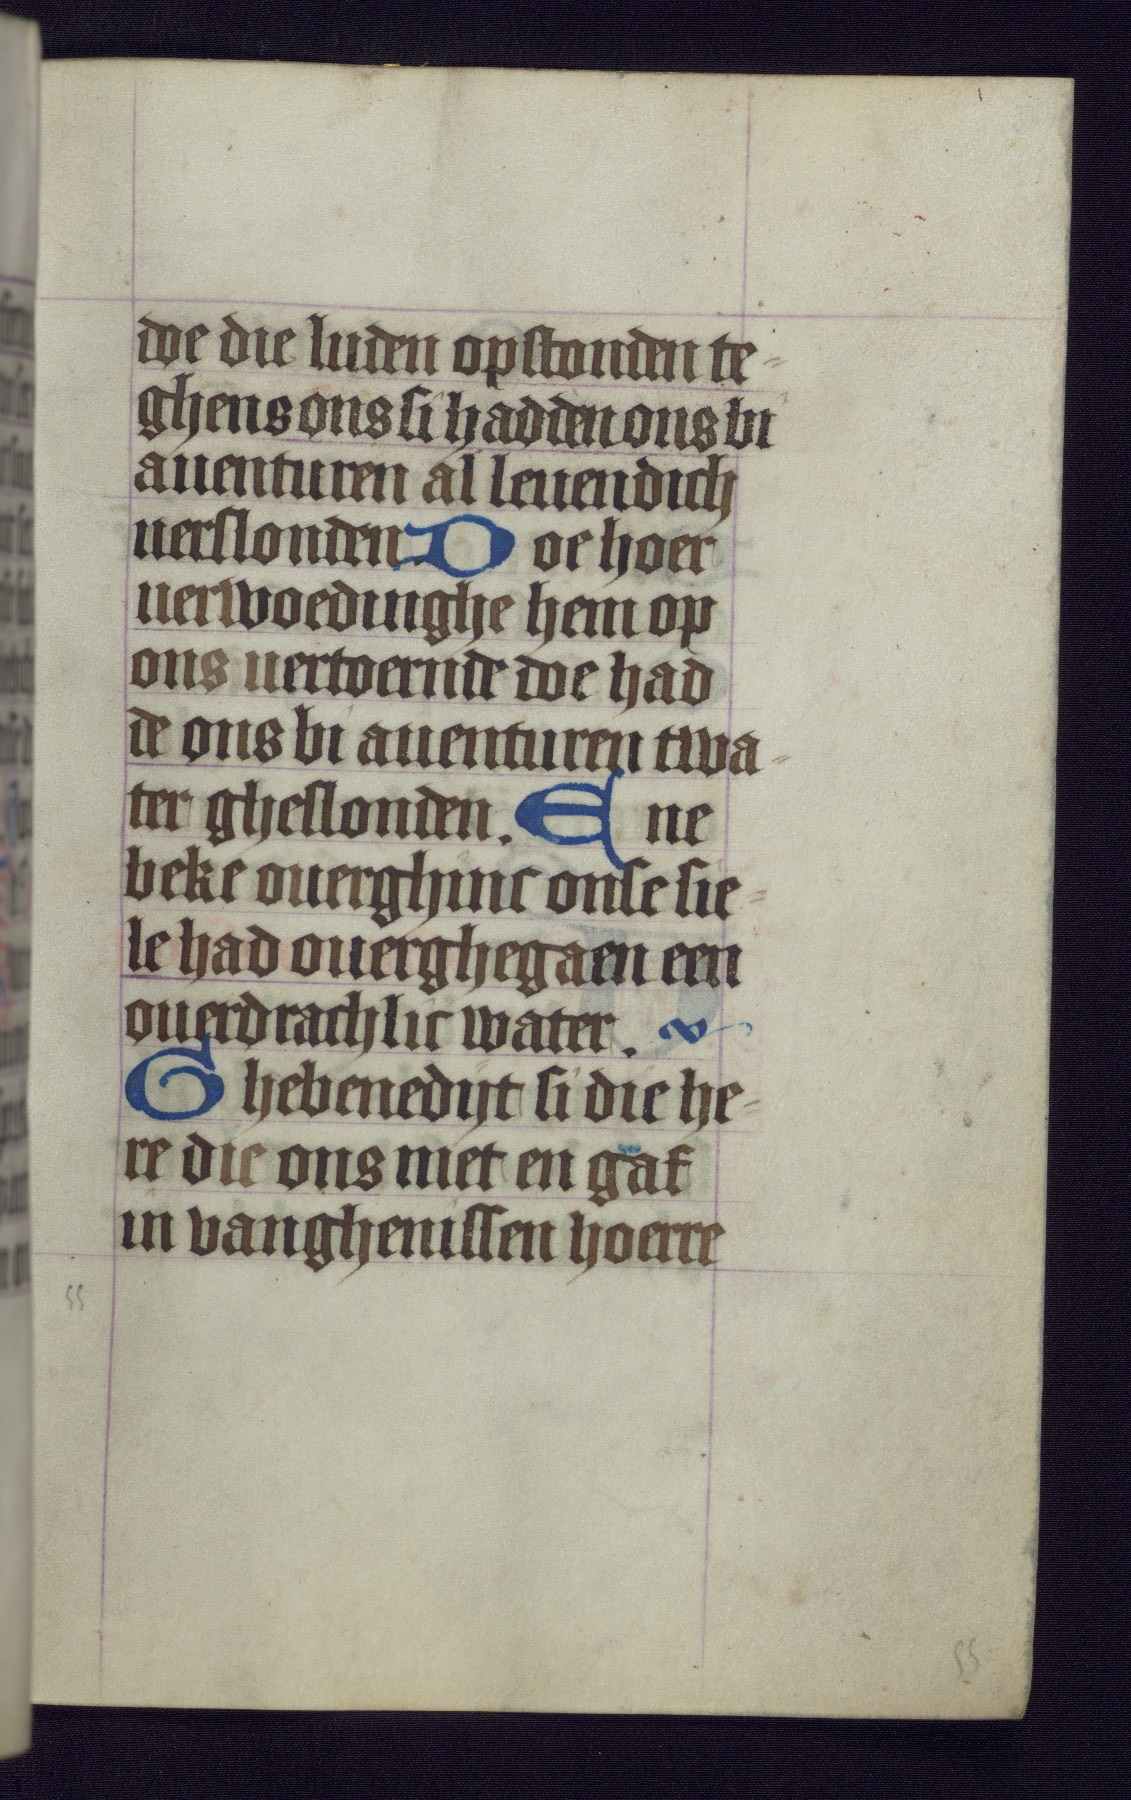 doe die luden opstonden te-
ghens ons si hadden ons bi
auenturen al leuendich
uerslonden. Doe hoer
uerwoedinghe hem op
ons uertoernde doe had
de ons bi auenturen twa-
ter gheslonden. Ene
beke ouerghinc onse sie-
le had ouerghegaen een
ouerdrachlic water.
Ghebenedijt si die he-
re die ons niet en gaf
in vanghenissen hoerre
55
55